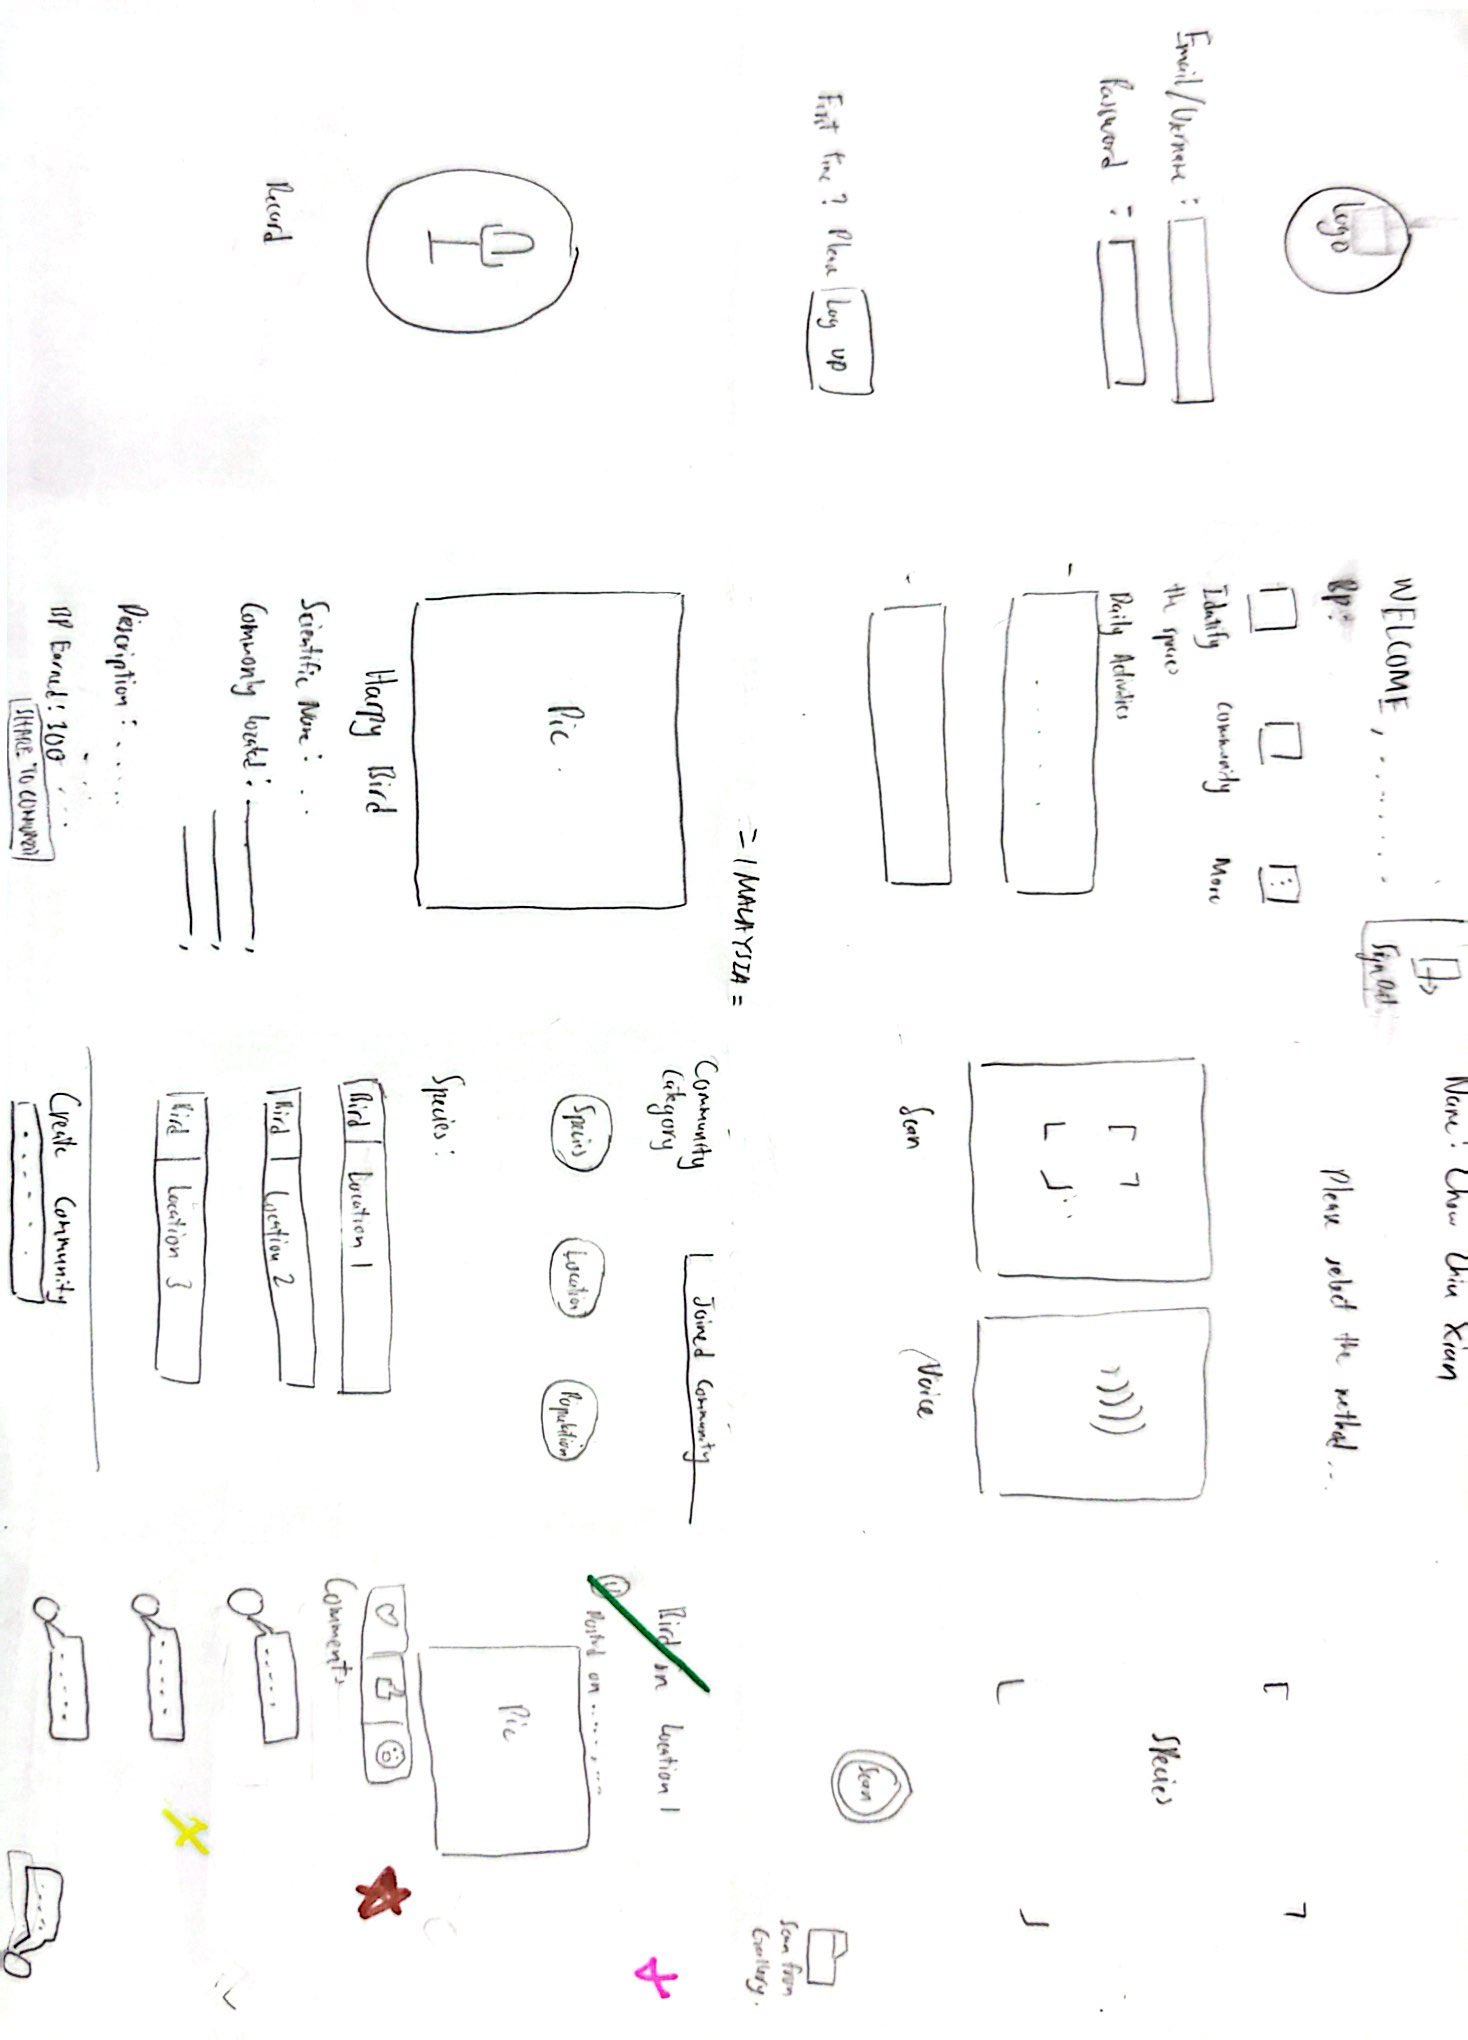 Logo
Email/Username :
Password :
First time? Please Log up
WELCOME, ........
Sign Out
BP:
Identify
the species
Community
More
Daily Activities
.....
Name: Chow Zhiu Xian
Please select the method...
Scan
Voice
Species
Scan
Scan from
Gallery.
Record
= 1 MALAYSIA =
Pic.
Harpy Bird
Scientific Name : ..
Commonly located :
Description : .....
BP Earned: 300
SHARE TO COMMUNITY
Community
Category
Joined Community
Species
Location
Population
Species :
Bird Location 1
Bird Location 2
Bird Location 3
Create Community
Bird on Location 1
Posted on ....., ...
Pic
Comments